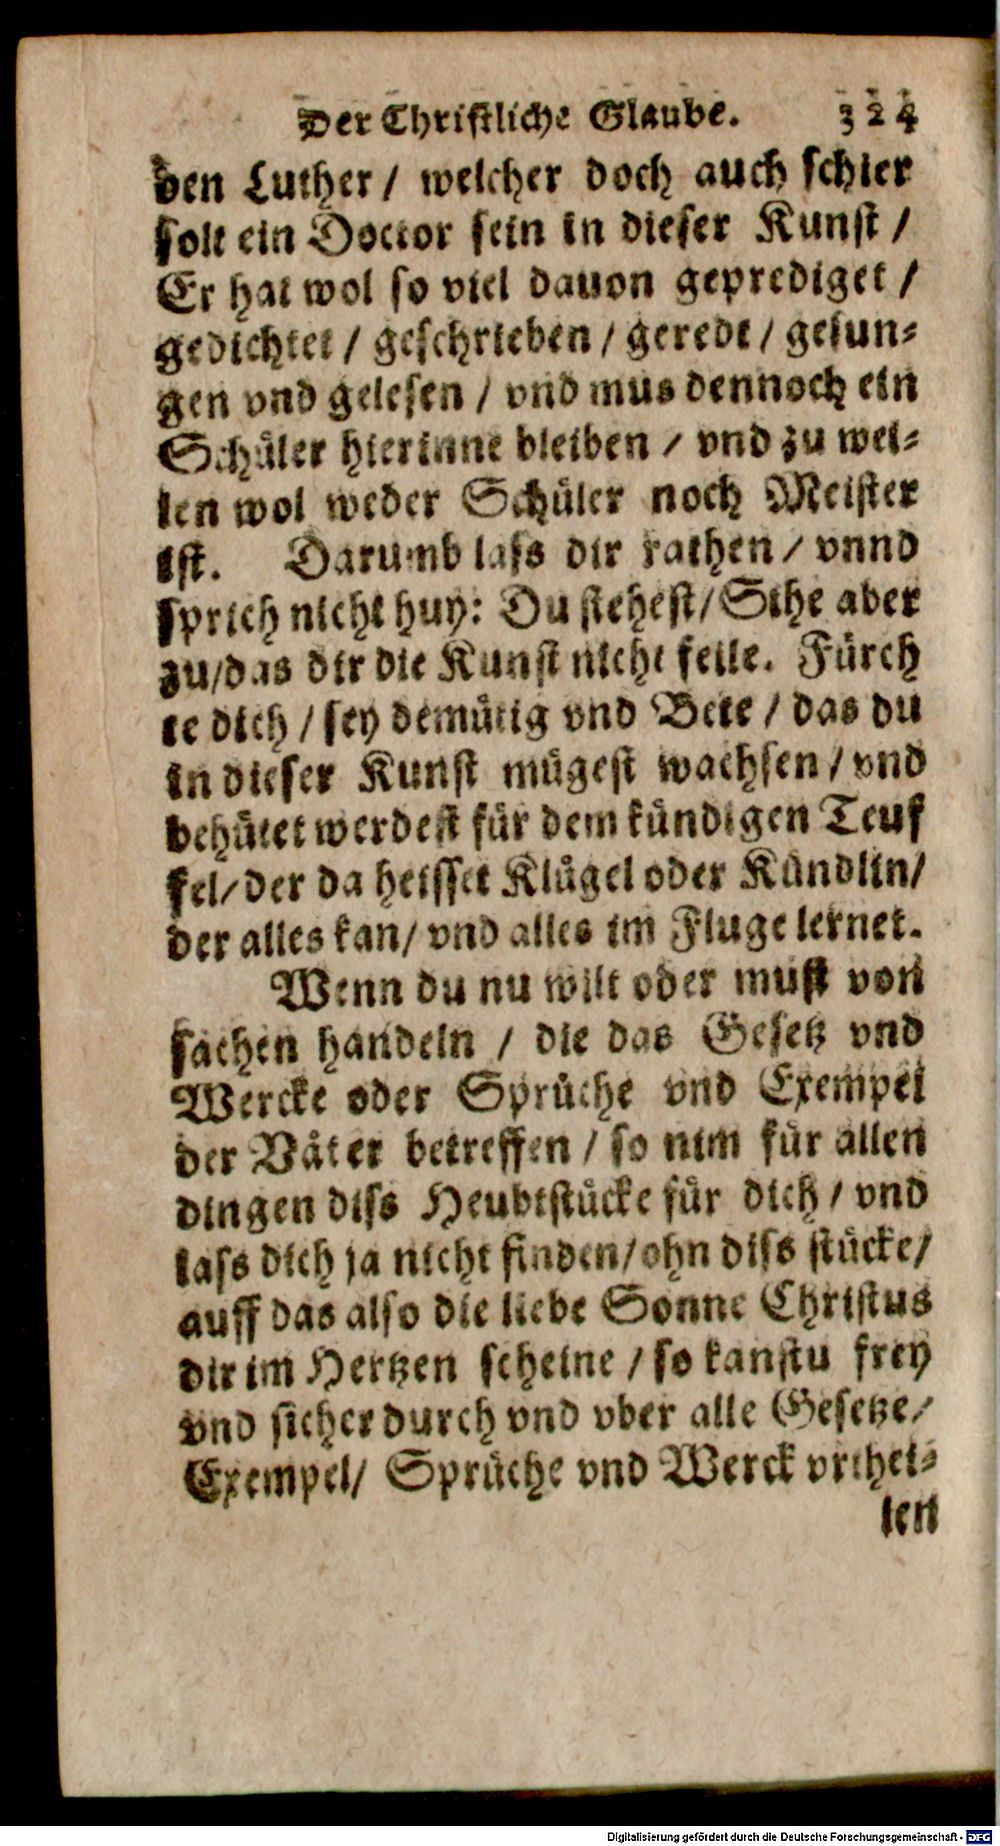 Der Christliche Glaube. 324
den Luther / welcher doch auch schier
solt ein Doctor sein in dieser Kunst /
Er hat wol so viel dauon geprediget /
gedichtet / geschrieben / geredt / gesun⸗
gen vnd gelesen / vnd mus dennoch ein
Schüler hierinne bleiben / vnd zu wei⸗
len wol weder Schüler noch Meister
ist. Darumb lass dir rathen / vnnd
sprich nicht huy: Du stehest / Sihe aber
zu / das dir die Kunst nicht feile. Fürch
te dich / sey demütig vnd Bete / das du
in dieser Kunst mügest wachsen / vnd
behütet werdest für dem kündigen Teuf
fel / der da heisset Klügel oder Kündlin /
der alles kan / vnd alles im Fluge lernet.
Wenn du nu wilt oder must von
sachen handeln / die das Gesetz vnd
Wercke oder Sprüche vnd Exempel
der Väter betreffen / so nim für allen
dingen diss Heubtstücke für dich / vnd
lass dich ja nicht finden / ohn diss stücke /
auff das also die liebe Sonne Christus
dir im Hertzen scheine / so kanstu frey
vnd sicher durch vnd vber alle Gesetze /
Exempel / Sprüche vnd Werck vrthei⸗
len
Digitalisierung gefördert durch die Deutsche Forschungsgemeinschaft - DFG